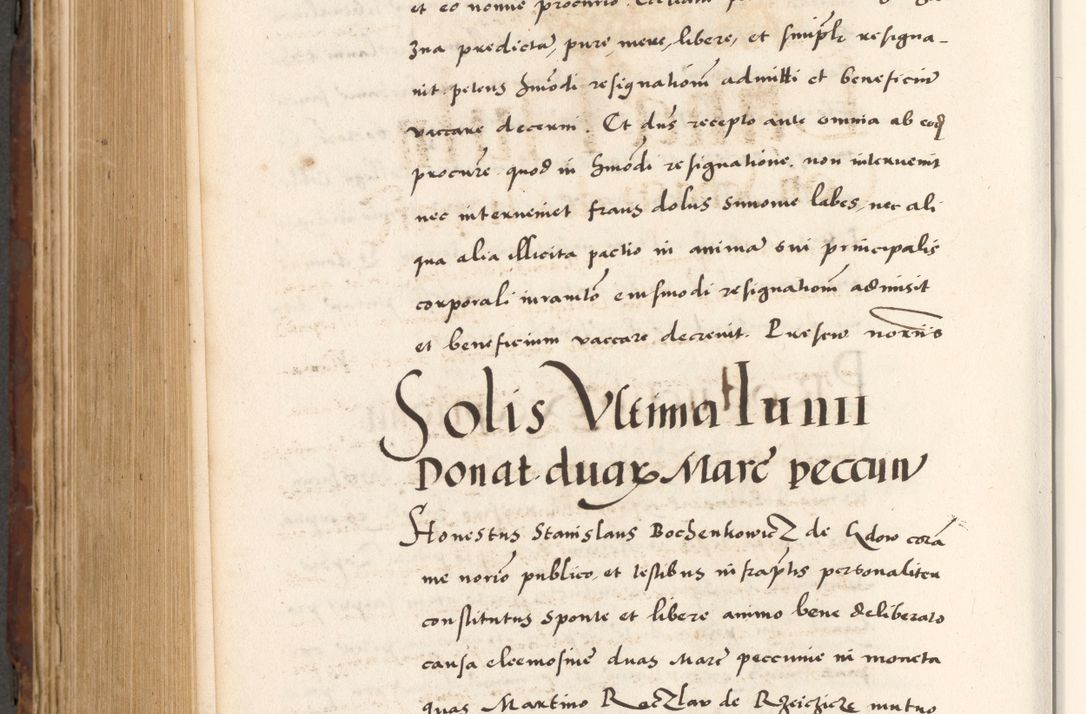 et eo nomine procurio
zna predicta, pure, mere, libere, et simplr resigna-
nit petens hmodi resignationem admitti et beneficiu
vaccare decerni. Et dns recepto ante omnia ab eod
procure quod in hmodi resignatione non intervenit
nec interveniet fraus dolus simonie labes, nec ali
qua alia illicita pactio in anima sui principalis
corporali iuramto eiusmodi resignationem admisit
et beneficium vaccare decrevit. Presen
Solis Ultima Iunii
Donat duarx Marc peccun
Honestus Stanislaus Bochenkowicz de cora
me norio publico, et testibus infraptis personaliter
constitutus sponte et libere animo bene deliberato
causa eleemosine duas Marc peccunie in moneta
quas Martino de mutuo